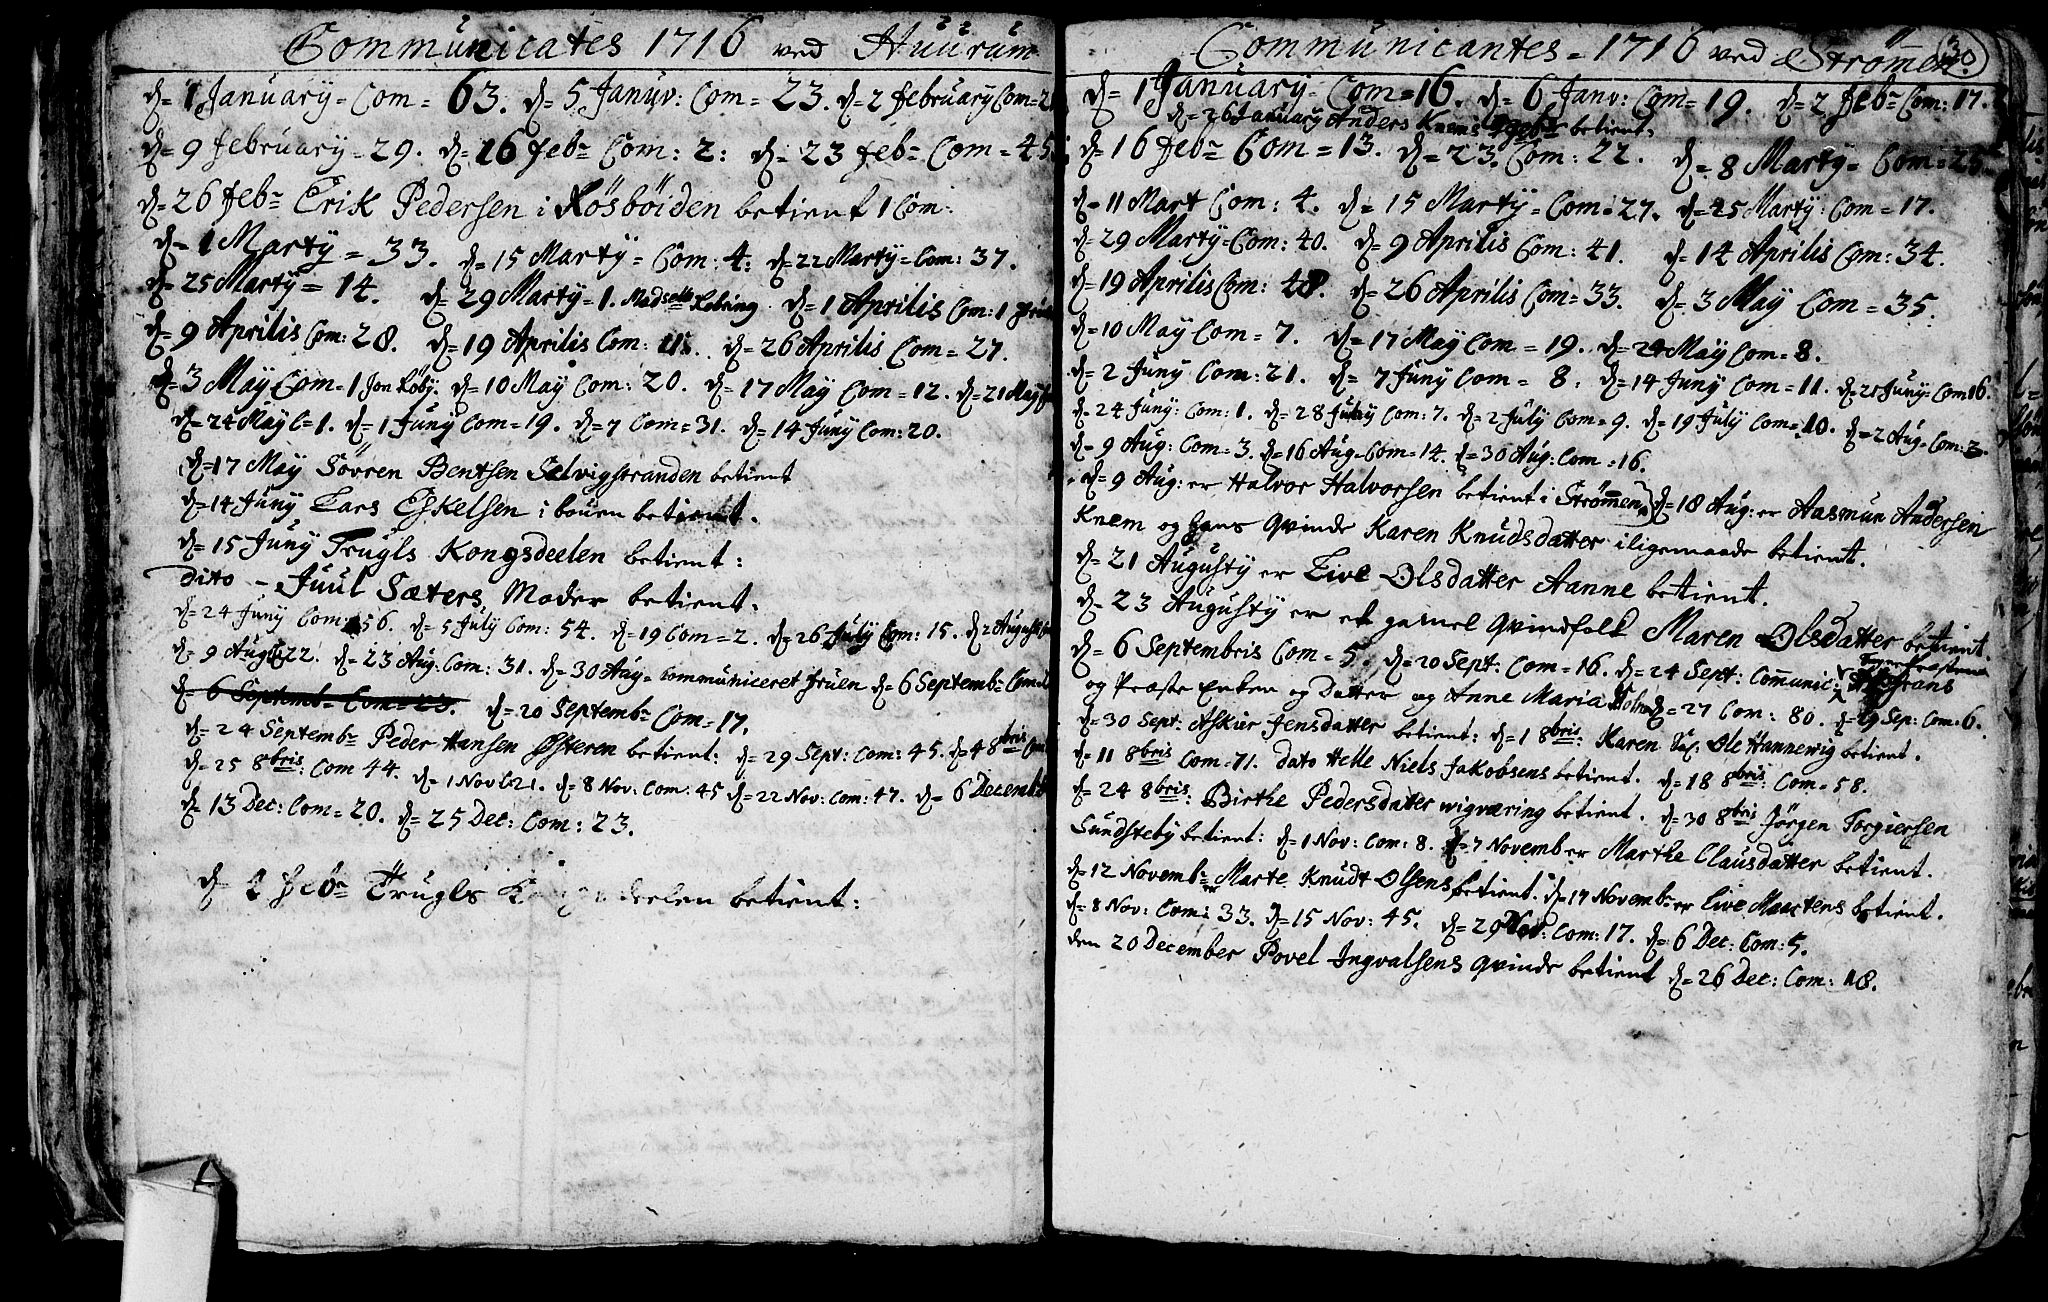 Communicates 1716 ved Huurum
d= 1 January = Com = 63. d= 5 Janúv: Com = 23. d= 2 february Com=
d= 9 february = 29. d= 16 febr Com: 2: d= 23 feb= Com = 45
d= 26 febr Erik Pedersen i Rösböiden betient 1 Com:
d= 1 Marty = 33. d= 15 Marty = Com: 4: d= 22 Marty = Com: 37.
d= 25 Marty = 14. d= 29 Marty = 1. d= 1 Aprilis Com: 1
d= 9 Aprilis Com: 28. d= 19 Aprilis Com: d= 26 Aprilis Com = 27.
d= 3 May Com = 1 Jon Röby. d= 10 May Com: 20. d= 17 May Com = 12. d= 21 May
d= 24 May C = 1. d= 1 Juny Com = 19. d= 7 Com = 31. d= 14 Juny Com: 20.
d= 17 May Sövren Bentsen Selvigstranden betient
d= 14 Juny Lars Eskelsen i bouen betient.
d= 15 Juny Trugls Kongsdeelen betient:
dito - Juul Sæters Moder betient.
d= 24 Juny Com: 56. d= 5 July Com: 54. d= 19 Com = 2. d= 26 July Com: 15. d= 2 Augusti
d= 9 Aug C 22. d= 23 Aug: Com: 31. d= 30 Aug = communiceret fruen d= 6 Septemb= Com
d= 6 Septemb= Com = 23. d= 20 Septemb= Com = 17.
d= 24 Septembr Peder Hansen Østeren betient: d= 29 Sept: Com: 45. d= 4 8bris Com
d= 25 8bris: Com 44. d= 1 Nov C 21. d= 8 Nov: Com: 45 d= 22 Nov: Com: 47. d= 6 Decemb
d= 13 Dec: Com = 20. d= 25 Dec: Com: 23.
d= 2 febr Trugls deelen betient:
Communicantes = 1716 ved Strömen
30
d= 1 January = Com = 16. d= 6 Janv: Com = 19. d= 2 febr Com: 17.
d= 26 January Anders Knems betient.
d= 16 febr Com = 13. d= 23. Com: 22. d= 8 Marty = Com = 25
d= 11 Mart Com: 4. d= 15 Marty = Com = 27. d= 25 Marty: Com = 17.
d= 29 Marty = Com: 40. d= 9 Aprilis Com: 41. d= 14 Aprilis Com: 34.
d= 19 Aprilis Com: 48. d= 26 Aprilis Com = 33. d= 3 May Com = 35.
d= 10 May Com = 7. d= 17 May Com = 19. d= 24 May Com = 8.
d= 2 Juny Com: 21. d= 7 Juny Com = 8. d= 14 Juny Com = 11. d= 21 Juny = Com 16.
d= 24 Juny: Com: 1. d= 28 Juny Com: 7. d= 2 July Com = 9. d= 19 July Com = 10. d= 2 Aug = Com: 2.
d= 9 Aug: Com = 3. d= 16 Aug = Com = 14. d= 30 Aug: Com = 16.
d= 9 Aug: er Halvor Halvorsen betient i Strömen d= 18 Aug: er Aasmun Andersen
Knem og hans Qvinde Karen Knudsdatter iligemaade betient.
d= 21 Augusty er Live Olsdatter Aanne betient.
d= 23 Augusty er et gamel Qvindfolk Maren Olsdatter betient
d= 6 Septembris Com = 5. d= 20 Sept: Com = 16. d= 24 Sept: Communic:
og Præste Enken og Datter og Anne Maria Holm d= 27 Com: 80. d= 29 Sep: Com = 6.
d= 30 Sept: Askier Jensdatter betient: d= 1 8bris: Karen Sal. Ole Hannewig betient.
d= 11 8bris Com = 71. dato Helle Niels Jakobsens betient. d= 18 8bris: Com = 58.
d= 24 8bris: Birthe Pedersdater wigværing betient. d= 30 8bris Jörgen Torgiersen
Sundsteby betient: d= 1 Nov: Com: 8. d= 7 Novemb er Marthe Clausdatter betient.
d= 12 Novembr er Marte Knudt Olsens betient. d= 17 Novembr er Live Martens betient.
d= 8 Nov: Com: 33. d= 15 Nov: 45. d= 29 Nov: Com: 17. d= 6 Dec: Com: 5.
den 20 December Povel Ingvalsens Qvinde betient d= 26 Dec: Com: 18.